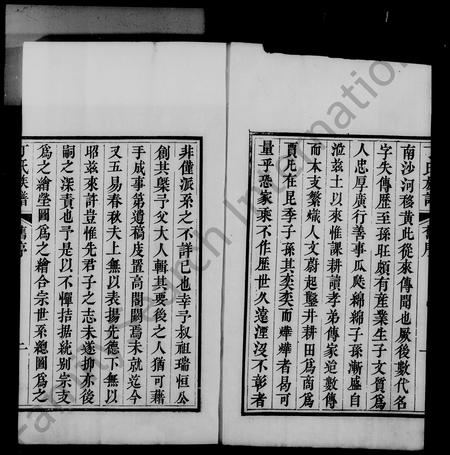 丁氏族譜 舊序 一
南沙河移黃此從來傳聞也厥後數代名
字失傳歷至孫旺頗有產業生子文質為
人忠厚廣行善事瓜瓞綿綿子孫漸盛自
茲土以來惟課耕讀孝弟傳家迨數傳
而本支繁熾人文蔚起鑿井耕田為商為
賈凡在昆季子孫其奕奕而燁燁者曷可
量乎恐家乘不作歷世久遠湮沒不彰者
非僅派系之不詳已也幸予叔祖瑞恒公
創其槩予父大人輯其要後之人猶可藉
手成事第遺稿庋置高閣闕焉未就迄今
又五易春秋夫上無以表揚先德下無以
昭茲來許豈惟先君子之志未遂抑亦後
嗣之深責也予是以不憚拮据統別宗支
為之繪塋圖為之繪合宗世系總圖為之
丁氏族譜 舊序 二
FamilySearch International